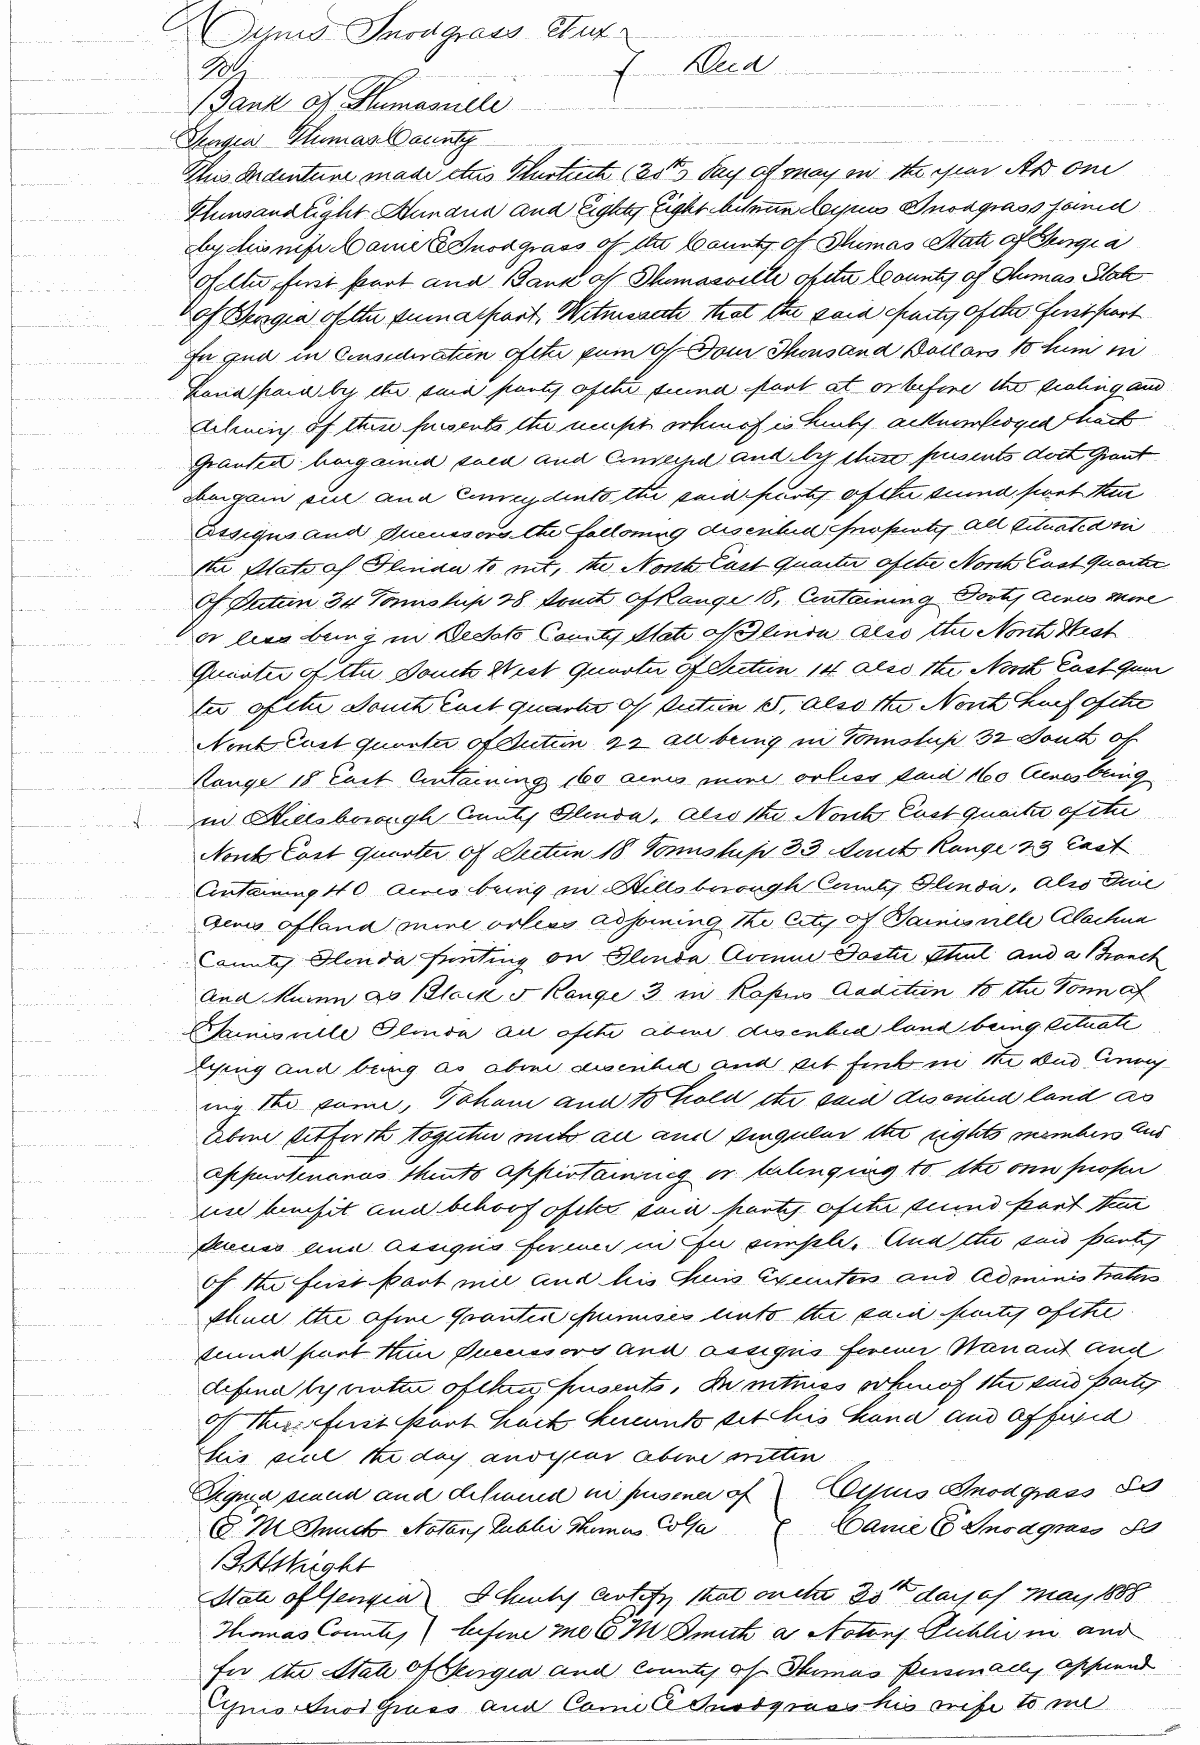 Cyrus Snodgrass et ux
To } Deed
Bank of Thomasville
Georgia Thomas County
This Indenture made this Thirtieth (30th) day of May in the year AD one
Thousand Eight Hundred and Eighty Eight between Cyrus Snodgrass joined
by his wife Carrie E Snodgrass of the County of Thomas State of Georgia
of the first part and Bank of Thomasville of the County of Thomas State
of Georgia of the second part, Witnesseth that the said party of the first part
for and in consideration of the sum of Four Thousand Dollars to him in
hand paid by the said party of the second part at or before the sealing and
delivery of these presents the receipt whereof is hereby acknowledged hath
granted bargained sold and conveyed and by these presents doth grant
bargain sell and convey unto the said party of the second part their
assigns and successors the following described property all situated in
the State of Florida to wit, the North East quarter of the North East quarter
of Section 34 Township 28 South of Range 18, Containing Forty acres more
or less being in DeSoto County State of Florida also the North West
Quarter of the South West quarter of Section 14 also the North East quar
ter of the South East quarter of Section 15, also the North half of the
North East quarter of Section 22 all being in Township 32 South of
Range 18 East Containing 160 acres more or less said 160 Acres being
in Hillsborough County Florida, also the North East quarter of the
North East quarter of Section 18 Township 33 South Range 23 East
Containing 40 acres being in Hillsborough County Florida. also Five
acres of land more or less adjoining the City of Gainisville Alachua
County Florida fronting on Florida Avenue Foster Street and a Branch
and known as Block 5 Range 3 in Ropers Addition to the Town of
Gainisville Florida all of the above described land being situate
lying and being as above described and set forth in the Deed Convey
ing the same, To have and to hold the said described land as
above set forth together with all and singular the rights members and
appurtenances thereto appertaining or belonging to the own proper
use benefit and behoof of the said party of the second part their
success and assigns forever in fee simple. And the said party
of the first part will and his heirs Executors and Administrators
shall the afore granted premises unto the said party of the
second part their Successors and assigns forever Warrant and
defend by virtue of these presents. In witness whereof the said party
of the first part hath hereunto set his hand and affixed
his seal the day and year above written
Signed sealed and delivered in presence of } Cyrus Snodgrass SS
E M Smith Notary Public Thomas Co Ga { Carrie E Snodgrass SS
B.H Wright
State of Georgia } I hereby certify that on the 30th day of May 1888
Thomas County } before me E M Smith a Notary Public in and
for the State of Georgia and County of Thomas personally appeared
Cyrus Snod Grass and Carrie E Snodgrass his wife to me